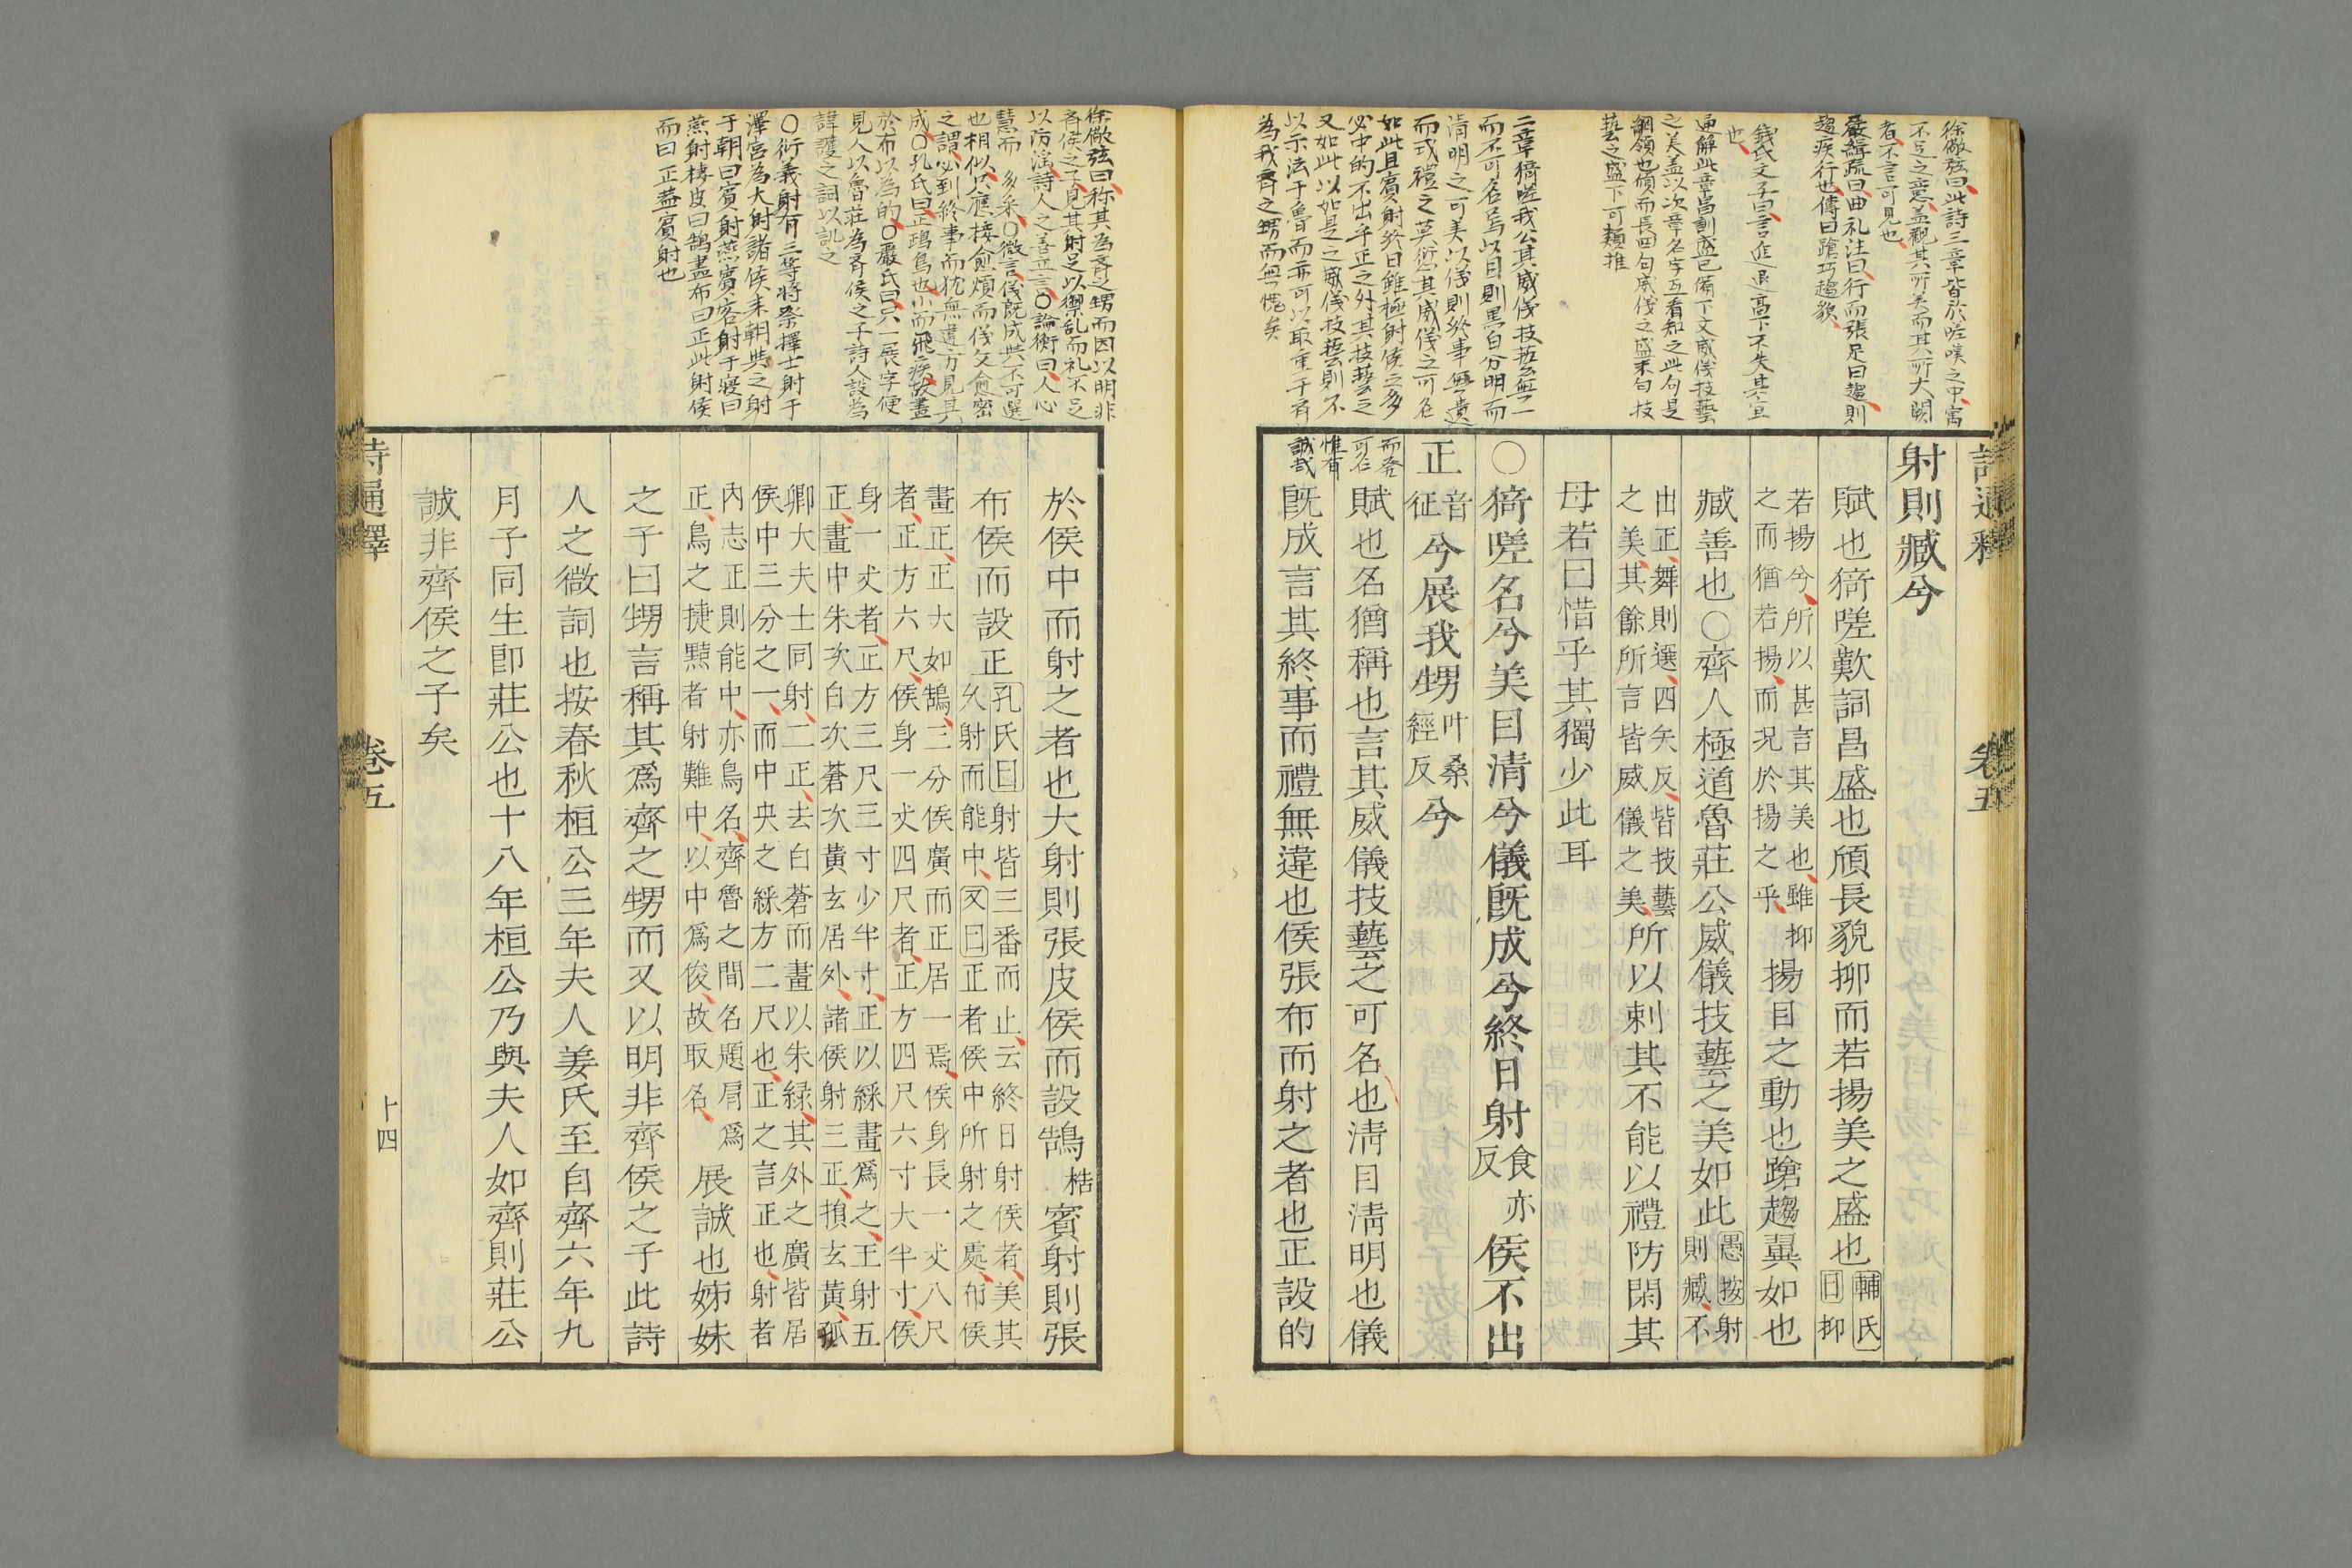 徐儆弦曰此詩三章皆於嗟嘆之中寓
不足之意盖觀其所美而其所大闕
者不言可見也
嚴緝疏曰曲礼注曰行而張足曰趨則
趨疾行也傳曰蹌巧趨貌
錢氏文子曰言進退高下不失其宜
也
通解此章昌訓盛已備下文威儀技藝
之美盖以次章名字互看知之此句是
綱領也頎而長四句威儀之盛末句技
藝之盛下可類推
二章猗嗟我公其威儀技藝無一
而不可名焉以目則黒白分明而
清明之可美以儀則終事無違
而式禮之莫愆其威儀之可名
如此且賓射終日雖極射侯之多
必中的不出乎正之外其技藝之
又如此以如是之威儀技藝則不
以示法于魯而亦可以取重于齊
為我齊之甥而無愧矣
詩通釋
卷五
射則臧兮
賦也猗嗟歎詞昌盛也頎長貌抑而若揚美之盛也輔氏曰抑
若揚兮所以甚言其美也雖抑之而猶若揚而况於揚之乎揚目之動也蹌趨翼如也
臧善也○齊人極道魯莊公威儀技藝之美如此愚按射則臧不
出正舞則選四矢反皆技藝之美其餘所言皆威儀之美所以刺其不能以禮防閑其
母若曰惜乎其獨少此耳
○猗嗟名兮美目清兮儀既成兮終日射食亦反侯不出
正音征兮展我甥叶桑經反兮
賦也名猶稱也言其威儀技藝之可名也清目清明也儀
而發可仁惟有誠哉
既成言其終事而禮無違也侯張布而射之者也正設的
徐儆弦曰称其為齊之甥而因以明非
齊侯之子見其射足以禦乱而礼不足
以防淫詩人之善立言○論衡曰人心
慧而多采○微言儀既成兮不可選
也相似只應接愈煩而儀文愈密
之謂必到終事而犹無違方見其
成○孔氏曰正鴊鳥也小而飛疾故畫
於布以為的○嚴氏曰只一展字便
見人以魯莊為齊侯之子詩人設為
諱護之詞以訊之
○衍義射有三等將祭擇士射于
澤宮為大射諸侯来朝與之射
于朝曰賓射燕賓客射于寝曰
燕射棲皮曰鵠畫布曰正此射侯
而曰正盖賓射也
於侯中而射之者也大射則張皮侯而設鵠梏賓射則張
布侯而設正孔氏曰射皆三番而止云終日射侯者美其久射而能中又曰正者侯中所射之處布侯
畫正正大如鵠三分侯廣而正居一焉侯身長一丈八尺者正方六尺侯身一丈四尺者正方四尺六寸大半寸侯
身一丈者正方三尺三寸少半寸正以綵畫爲之王射五正畫中朱次白次蒼次黃玄居外諸侯射三正損玄黃孤
卿大夫士同射二正去白蒼而畫以朱緑其外之廣皆居侯中三分之一而中央之綵方二尺也正之言正也射者
内志正則能中亦鳥名齊魯之間名題肩爲正鳥之捷黠者射難中以中爲俊故取名展誠也姊妹
之子曰甥言稱其爲齊之甥而又以明非齊侯之子此詩
人之微詞也按春秋桓公三年夫人姜氏至自齊六年九
月子同生卽莊公也十八年桓公乃與夫人如齊則莊公
誠非齊侯之子矣
詩通釋
卷五
十四